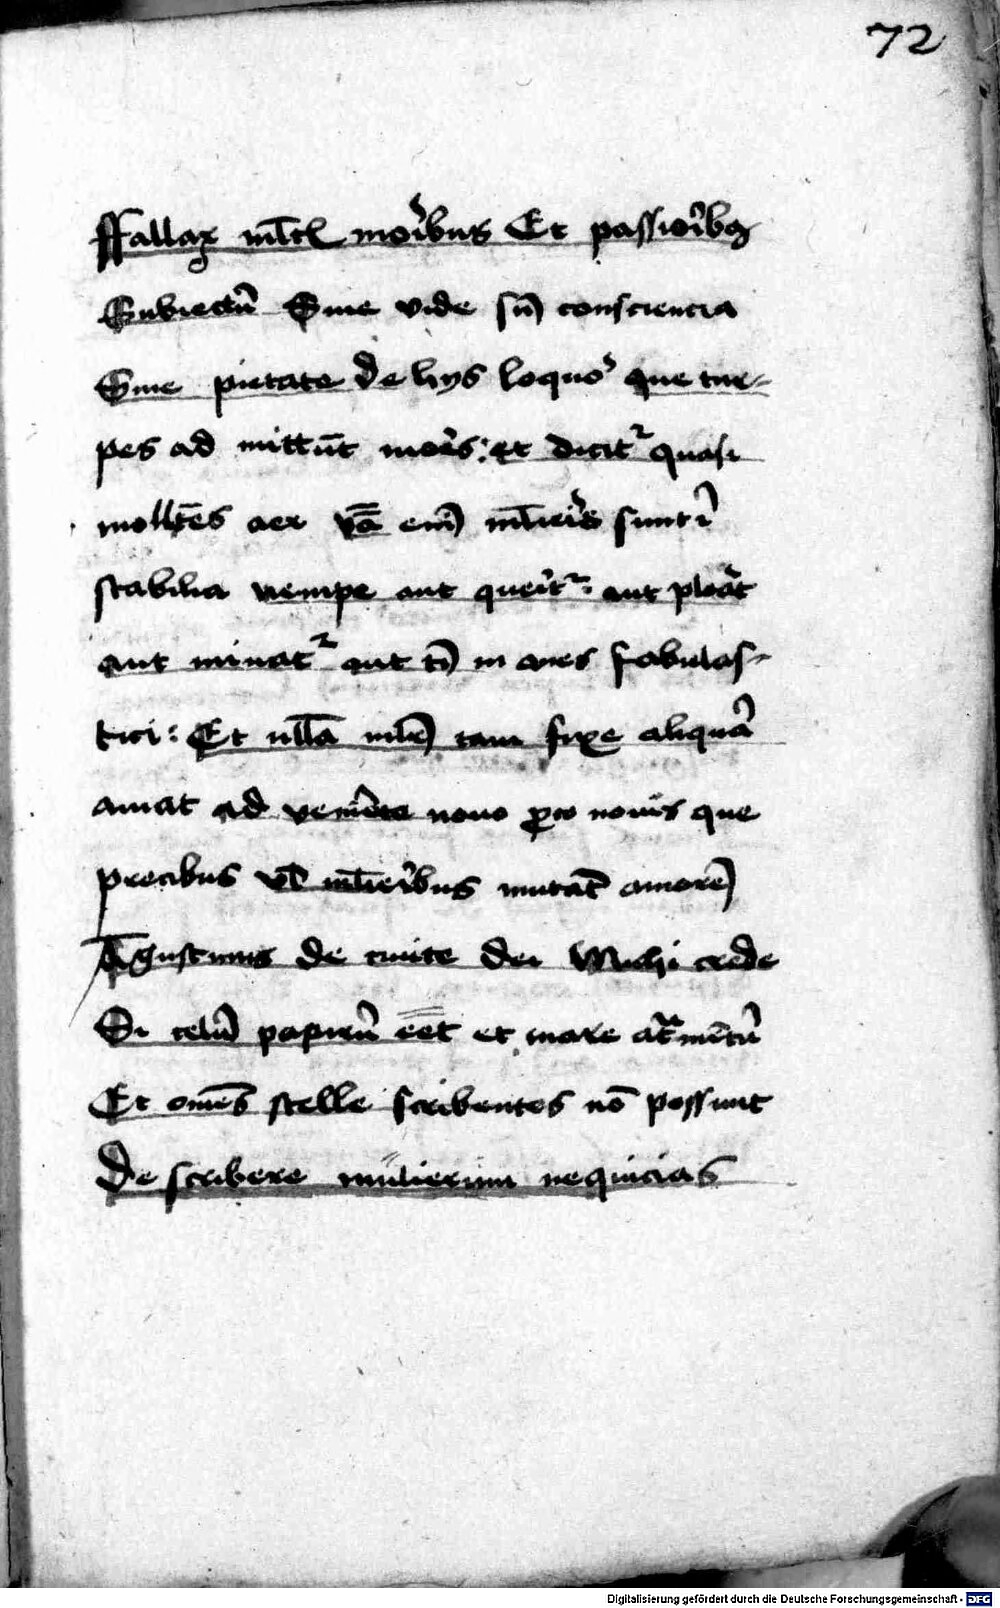 72
Ffallax ml̄ti moribus Et passioībꝰ
Subiectū Sine vide sīn consciencia
Sine pietate de hys loquor que tur-
pes ad mittūt mores: et dicitr quasi
mollēs aer vā enī ml̄ieris sunt ī
stabilia nempe aut querītr aut plorāt
aut minatr aut in anes fabulas-
tici: Et ulla ml̄r tam fixe aliquā
amat ad veniēte nouo ꝓco nouis que
precibus vl̄ ml̄ieribus mutāt amorē
Agustinus de ciuite dei Michi crede
Si celū papirū eēt et mare atramētū
Et om̄es stelle scribentes nō possunt
De scribere mulierum nequicias
Digitalisierung gefördert durch die Deutsche Forschungsgemeinschaft - DFG